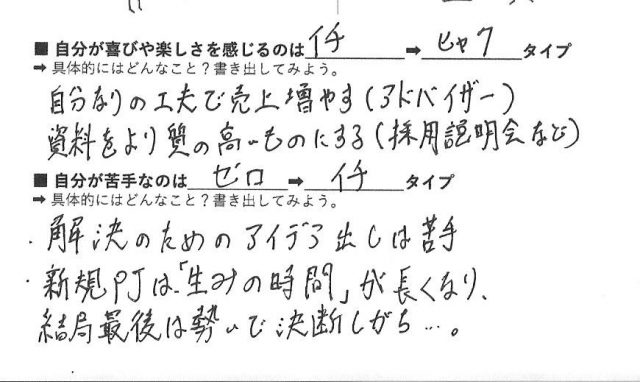 ■ 自分が喜びや楽しさを感じるのは イチ ➡ ヒャク タイプ
➡ 具体的にはどんなこと？書き出してみよう。
自分なりの工夫で売上増やす（アドバイザー）
資料をより質の高いものにする（採用説明会など）
■ 自分が苦手なのは ゼロ ➡ イチ タイプ
➡ 具体的にはどんなこと？書き出してみよう。
・解決のためのアイデア出しは苦手
・新規PJは、「生みの時間」が長くなり、
結局最後は勢いで決断しがち…。